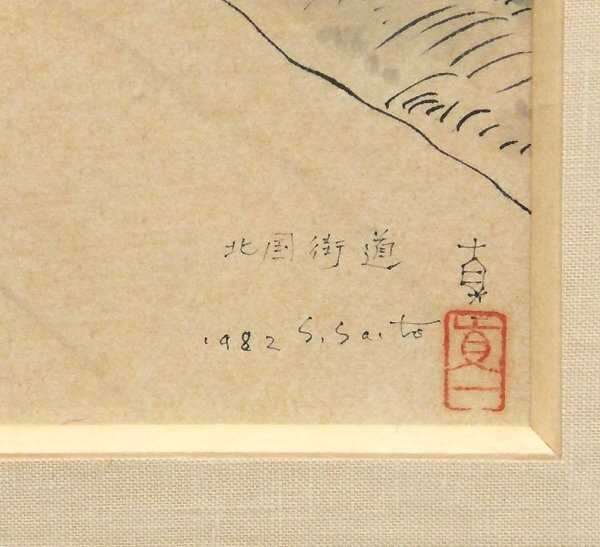 北国街道
1982 S. Saito
真一